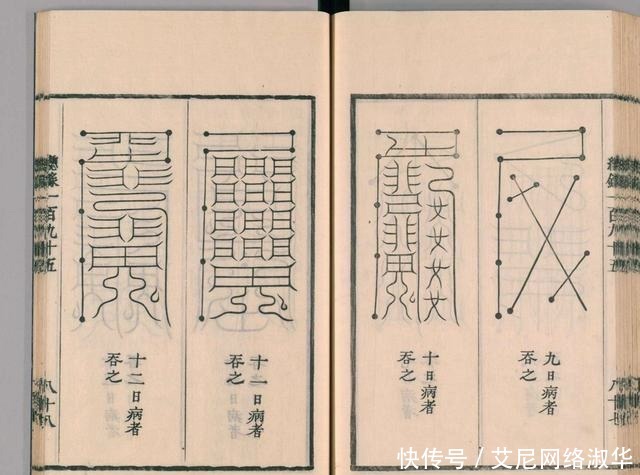 九日病者
吞之
十日病者
吞之
十一日病者
吞之
十二日病者
吞之
總錄一百九十五
八十八
快传号/艾尼网络淑华